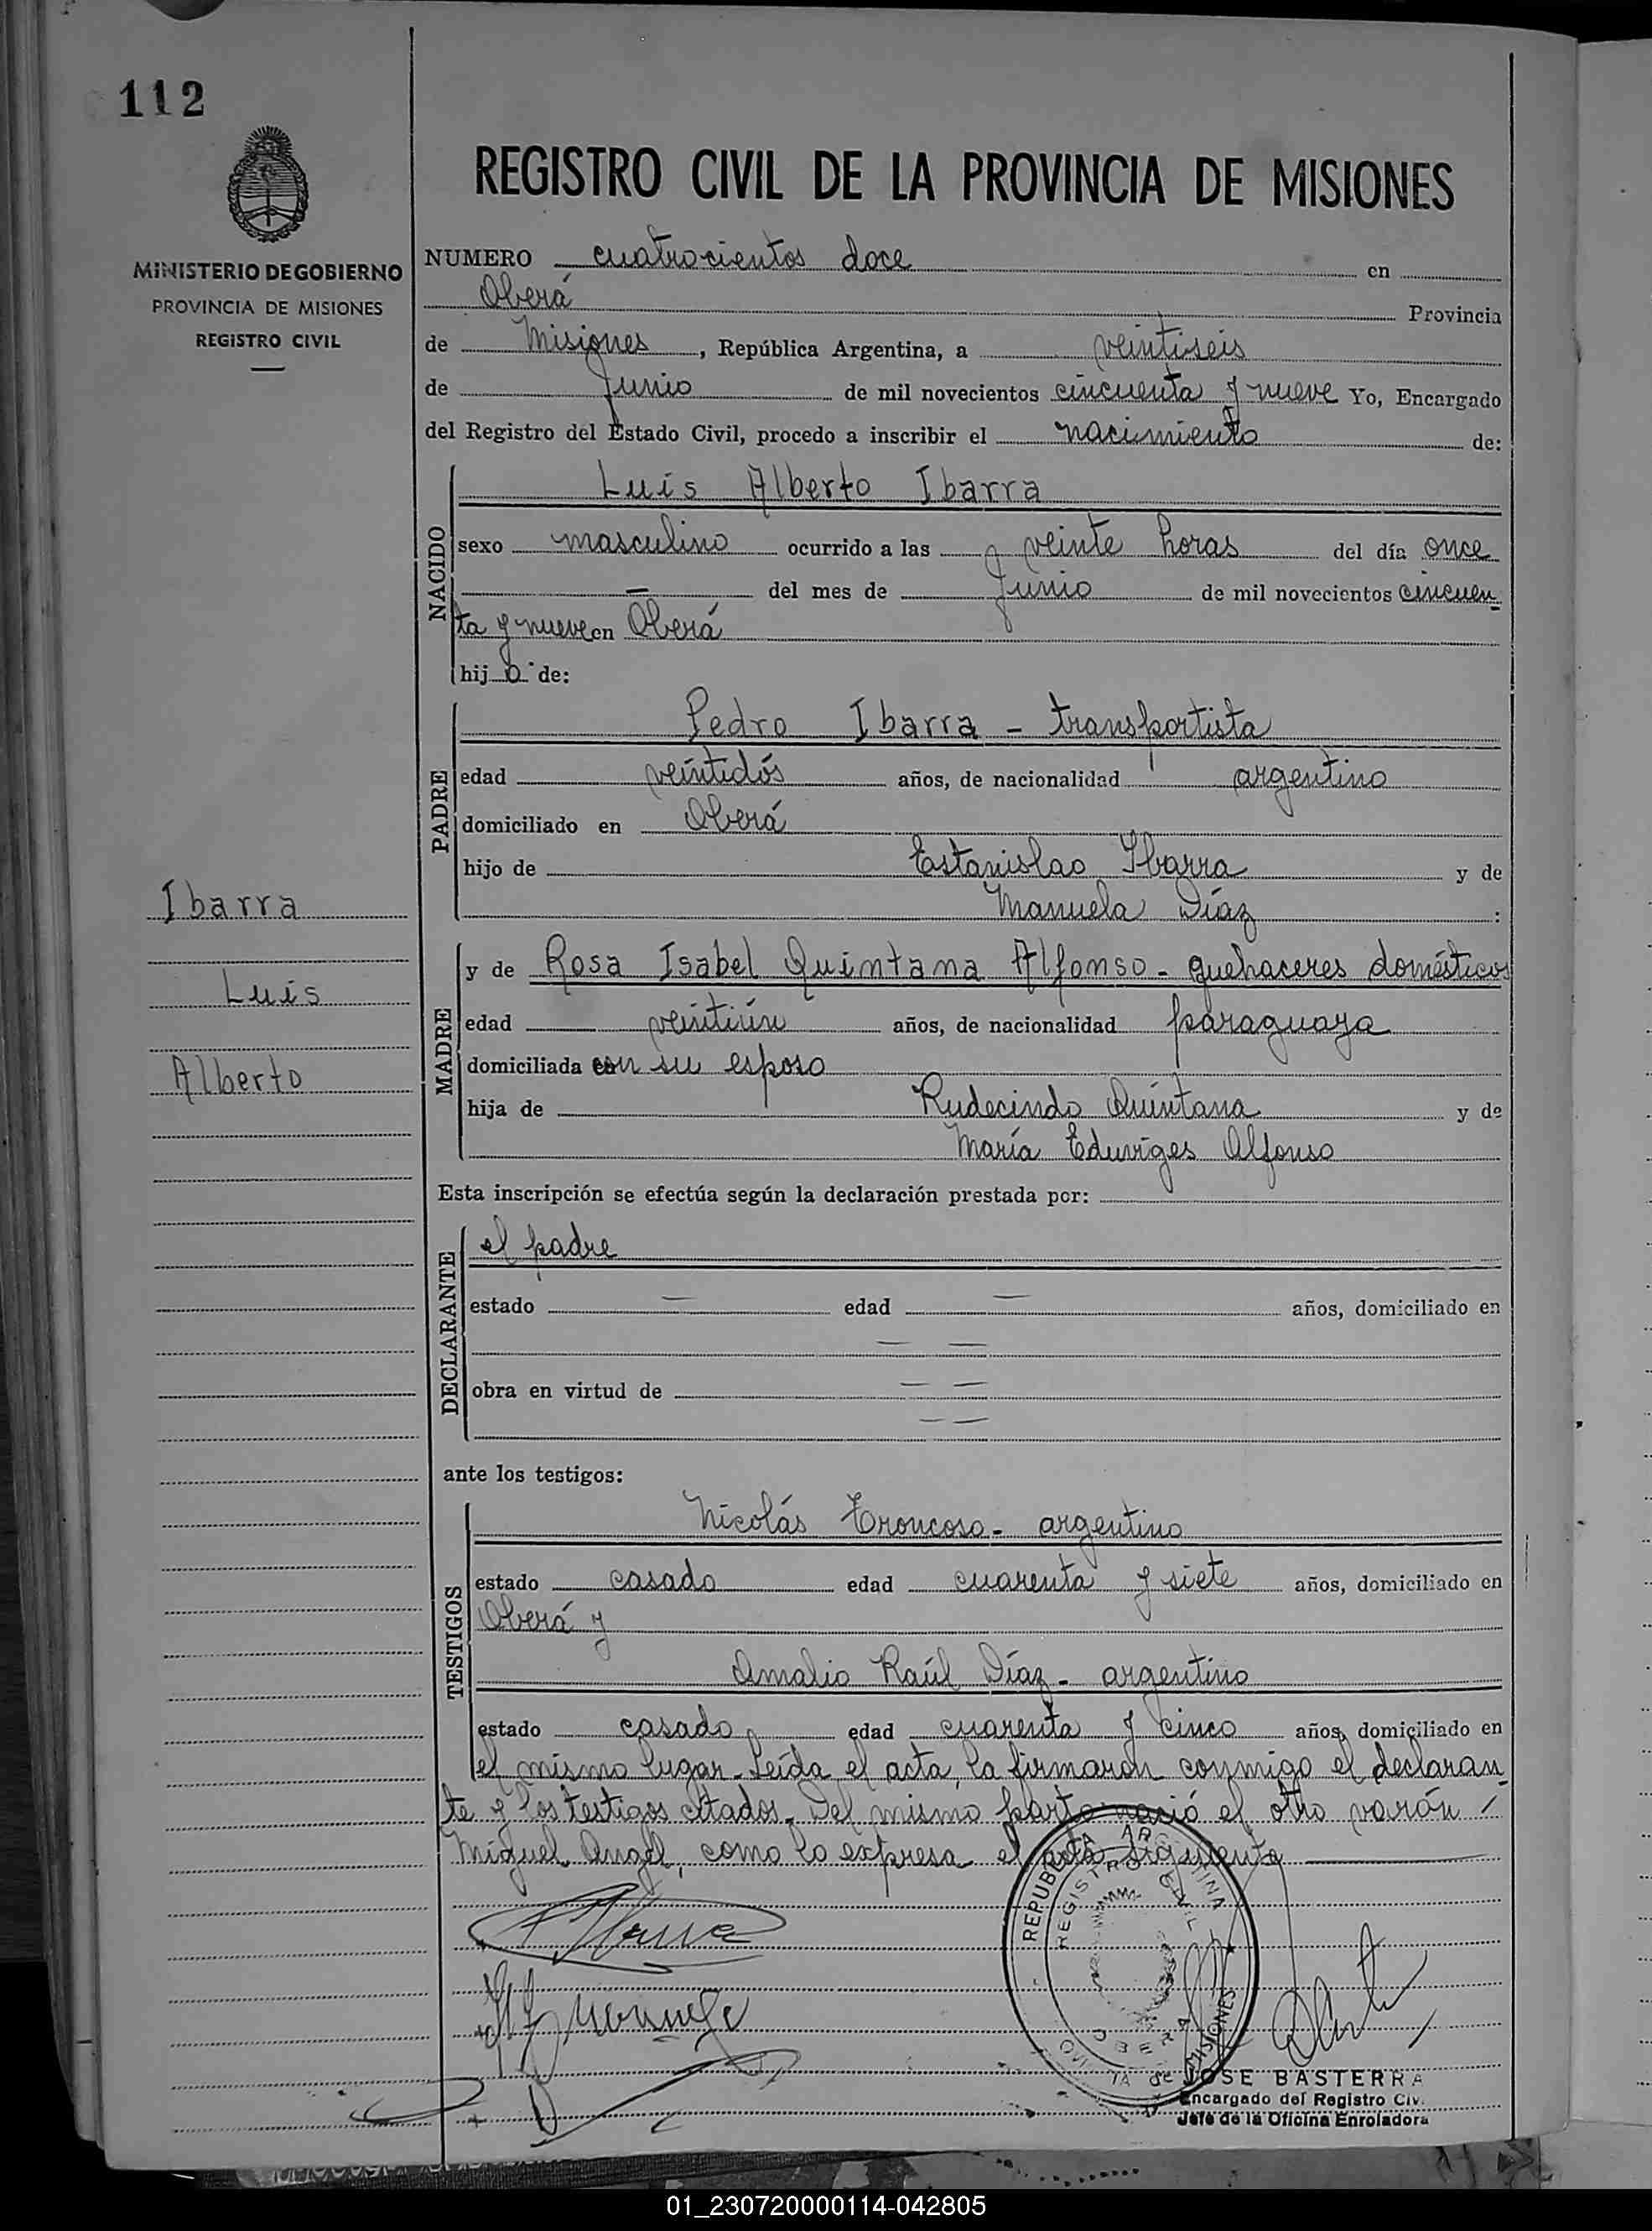 112
MINISTERIO DE GOBIERNO
PROVINCIA DE MISIONES
REGISTRO CIVIL
Ibarra
Luis
Alberto
REGISTRO CIVIL DE LA PROVINCIA DE MISIONES
NUMERO cuatrocientos doce en
Oberá Provincia
de Misiones, República Argentina, a veintiseis
de Junio de mil novecientos cincuenta y nueve Yo, Encargado
del Registro del Estado Civil, procedo a inscribir el nacimiento de:
NACIDO
Luis Alberto Ibarra
sexo masculino ocurrido a las veinte horas del día once
— del mes de Junio de mil novecientos cincuen
ta y nueve en Oberá
hijo de:
PADRE
Pedro Ibarra - transportista
edad veintidós años, de nacionalidad argentino
domiciliado en Oberá
hijo de Estanislao Ibarra y de
Manuela Díaz :
MADRE
y de Rosa Isabel Quintana Alfonso - quehaceres domésticos
edad veintiún años, de nacionalidad paraguaya
domiciliada con su esposo
hija de Rudecindo Quintana y de
María Eduviges Alfonso
Esta inscripción se efectúa según la declaración prestada por:
DECLARANTE
el padre
estado — edad — años, domiciliado en
— —
obra en virtud de — —
— —
ante los testigos:
TESTIGOS
Nicolás Troncoso - argentino
estado casado edad cuarenta y siete años, domiciliado en
Oberá y
Amalio Raúl Díaz - argentino
estado casado edad cuarenta y cinco años, domiciliado en
el mismo lugar. Leída el acta, la firmaron conmigo el declaran
te y los testigos citados. Del mismo parto nació el otro varón
Miguel Angel, como lo expresa el acta siguiente
REPUBLICA ARGENTINA
REGISTRO CIVIL
OBERA
MISIONES
JOSE BASTERRA
Encargado del Registro Civ.
Jefe de la Oficina Enroladora
01_230720000114-042805